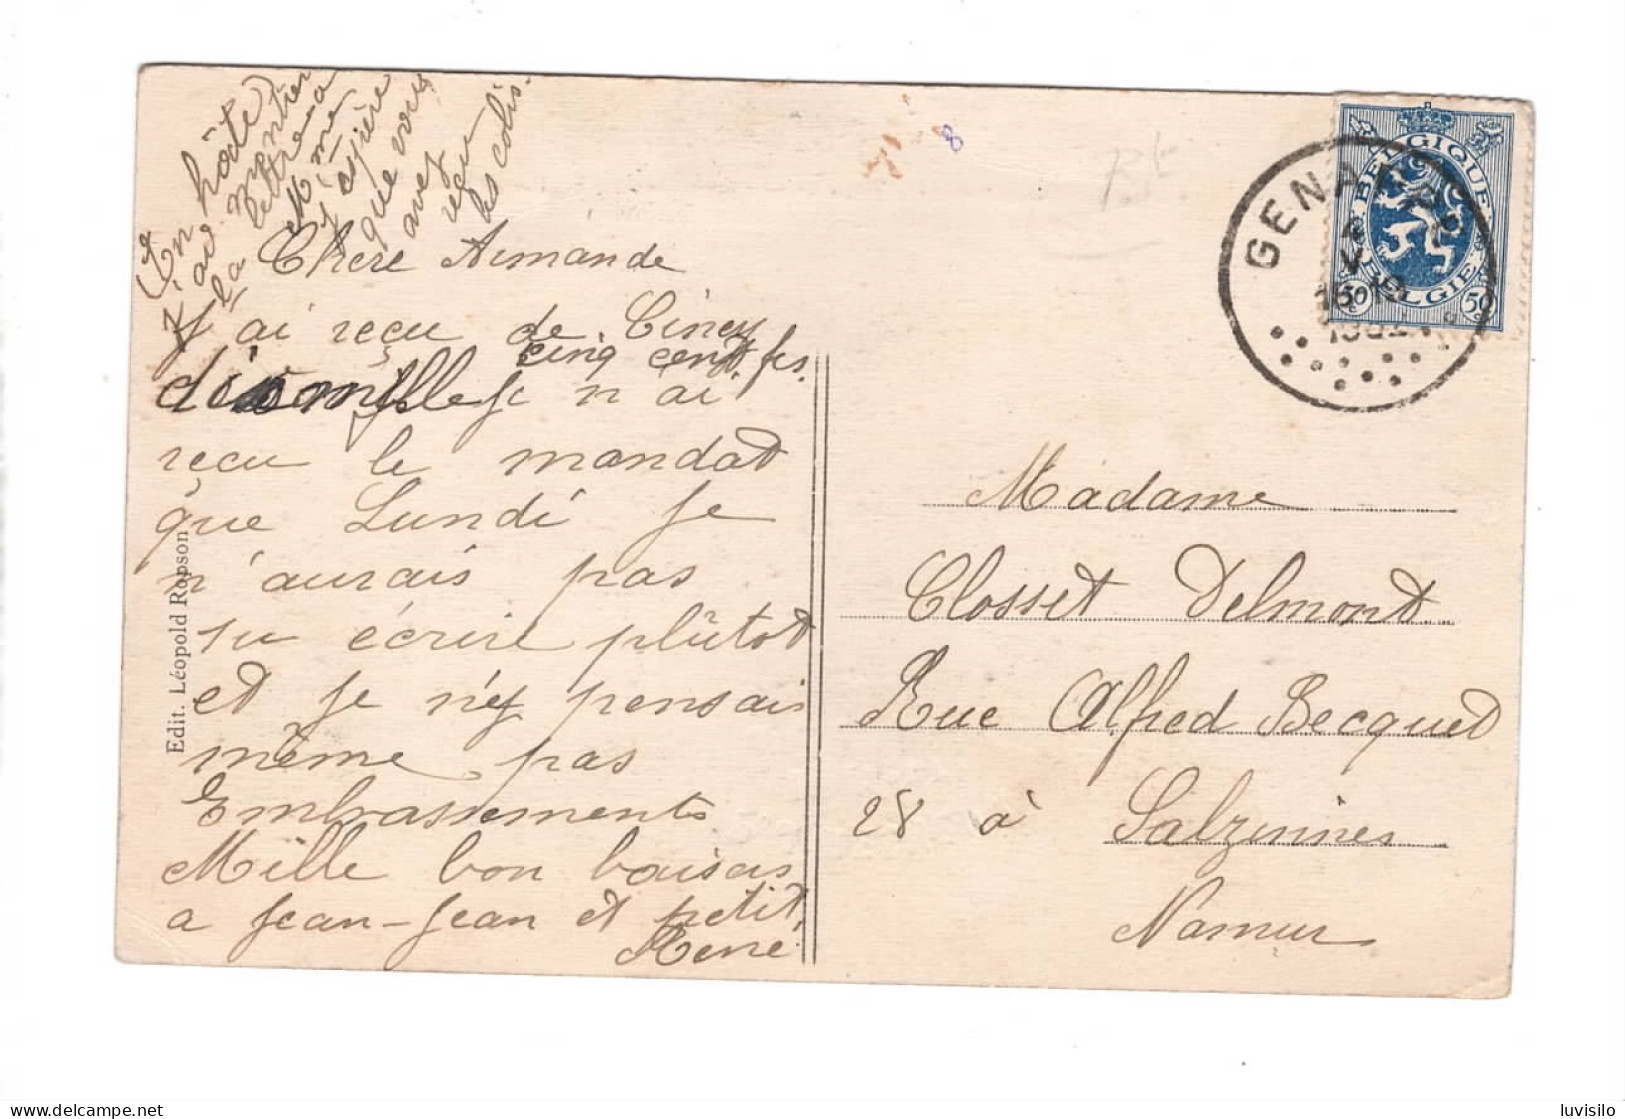 En hâte
j'ai montrer
la lettre a
M mé
j'éspére
que vous
avez
reçu
les colis.
Chere Armande
J'ai reçu de Ciney
cinq cent frs.
dix mille Je n'ai
reçu le mandat
que Lundi je
n'aurais pas
su écrire plûtot
et je n'éy pensais
même pas
Embrassements
Mille bon baisers
a Jean-Jean et petit
René
Edit. Léopold Ropson
8
BELGIQUE
BELGIE
50 c 50 c
GENAPPE
V
16
1932
Madame
Closset Delmont
Rue Alfred Becquet
28 à Salzinnes
Namur
luvisilo